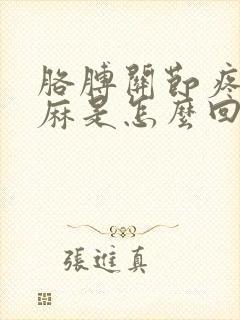 胳膊關節疼
麻是怎麼回
張進真